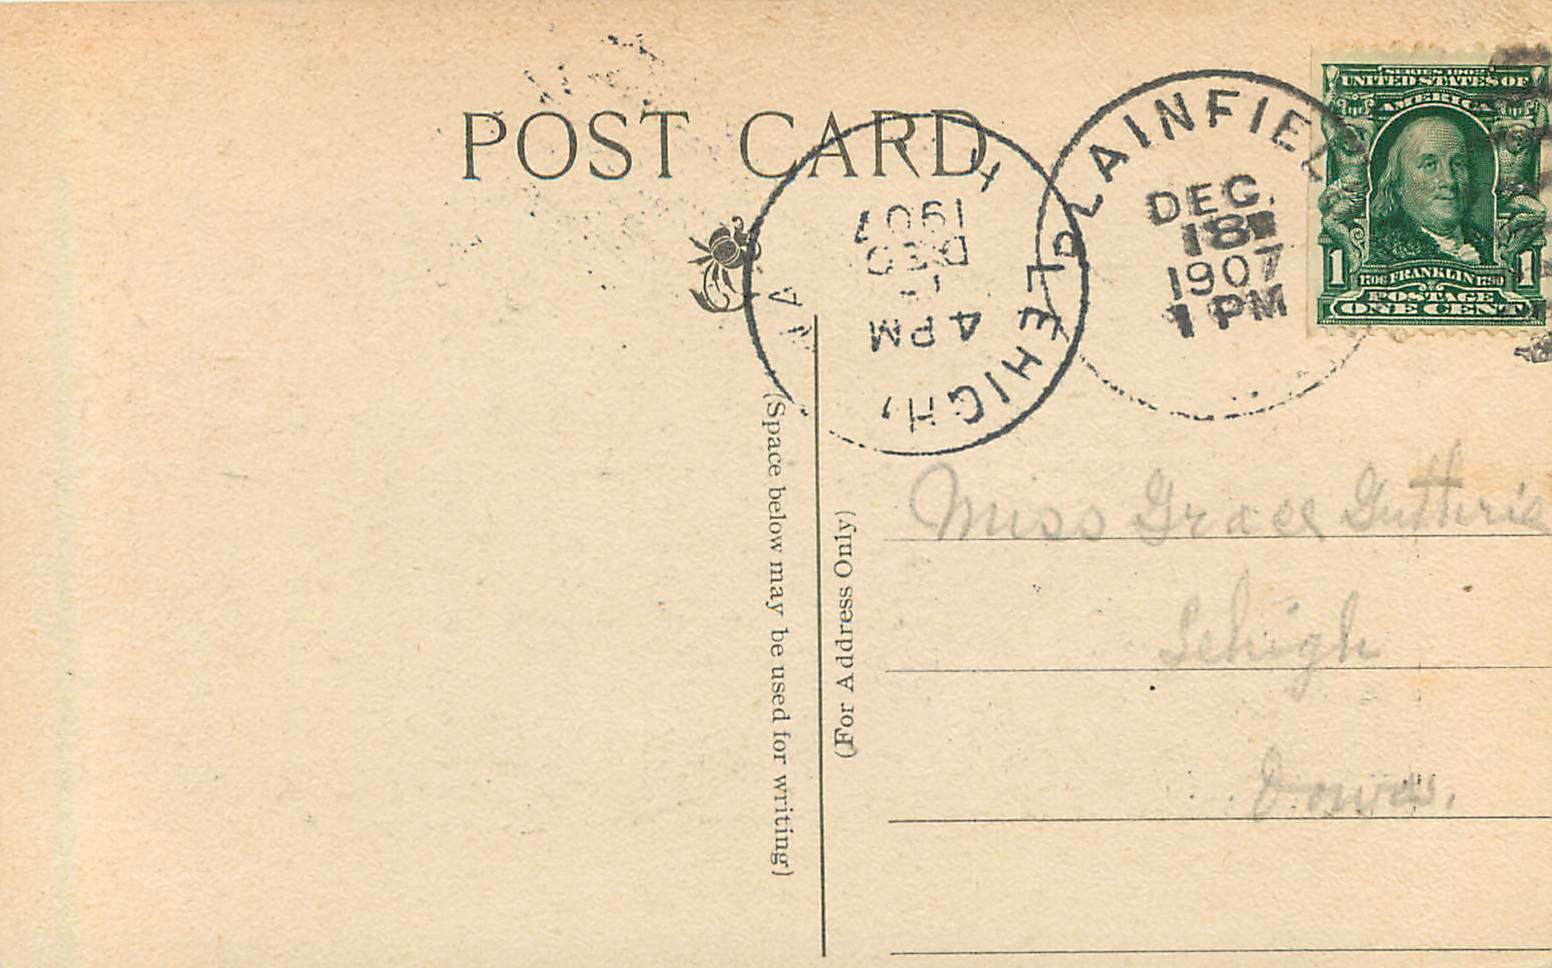 POST CARD
SERIES 1902
UNITED STATES OF
AMERICA
1 FRANKLIN 1
POSTAGE
ONE CENT
PLAINFIEL
DEC.
18
1907
1 PM
LEHIGH,
1907
DEC
4 PM
(Space below may be used for writing)
(For Address Only)
Miss Grace Guthrie
Lehigh
Iowa.